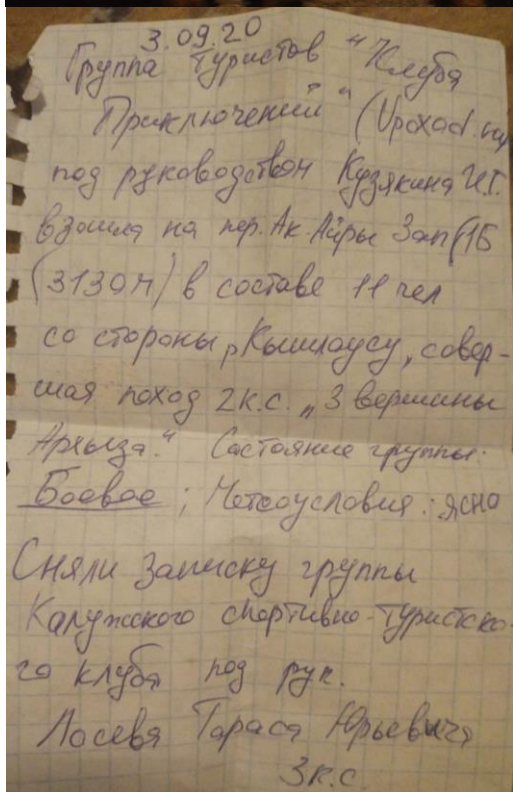 3.09.20
Группа Туристов "Клуба
Приключений" (Vpoxod.ru
под руководством Кузякина И.Г.
взошла на пер. Ак-Айры Зап (1Б
(3130м) в составе 11 чел
со стороны р. Кышлаусу, совер-
шая поход 2 к.с. „3 вершины
Архыза." Состояние группы:
Боевое; Метеоусловия: ясно
Сняли записку группы
Калужского спортивно-туристско-
го клуба под рук.
Лосева Тараса Юрьевича
3 к.с.